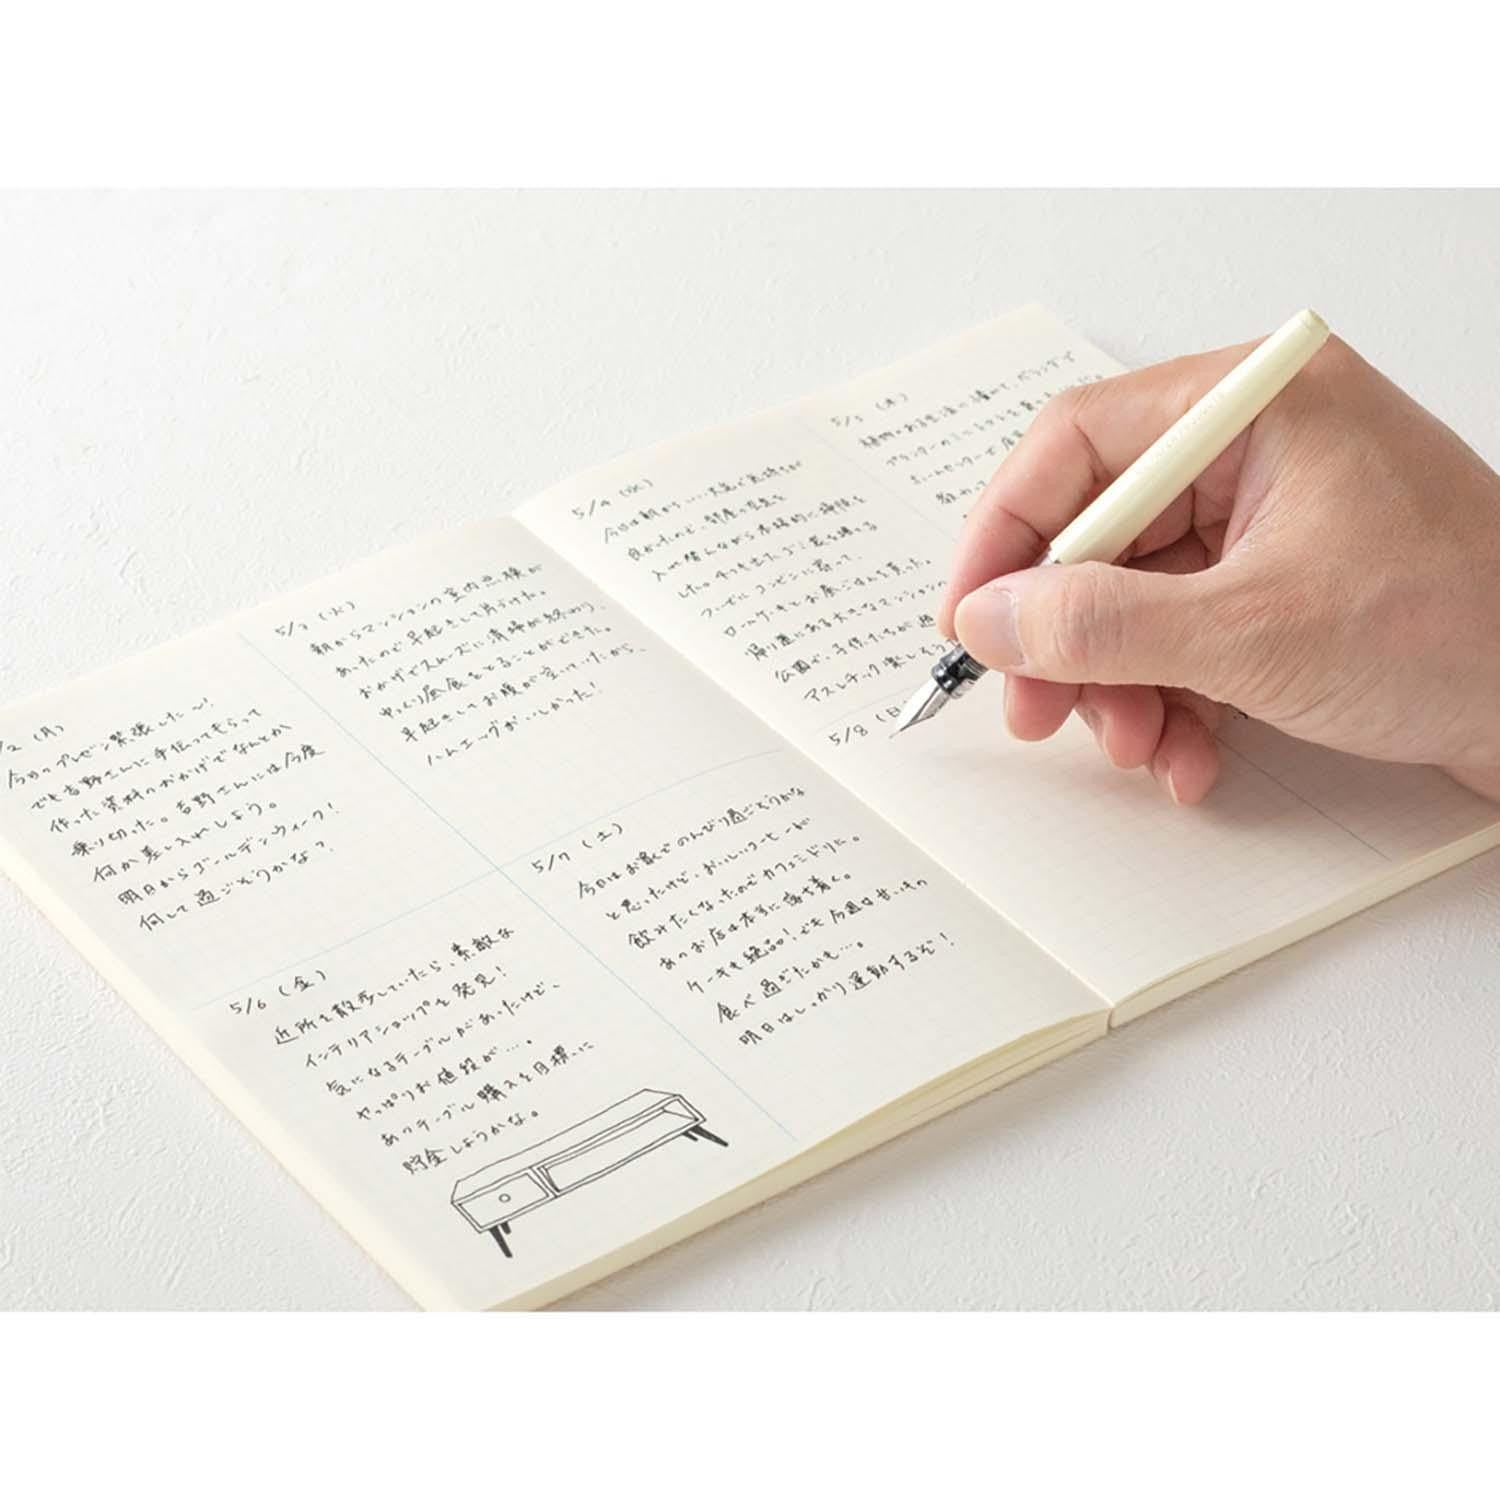 2 (月)
今日のプレゼン緊張した〜!
でも吉野さんに手伝ってもらって
作った資料のおかげでなんとか
乗り切った。吉野さんには今度
何か差し入れしよう。
明日からゴールデンウィーク!
何して過ごそうかな?
5/3 (火)
朝からマンションの室内点検が
あったので早起きして片づけた。
おかげでスムーズに清掃が終わり、
ゆっくり昼食をとることができた。
早起きしてお腹が空いていたから、
ハムエッグがおいしかった!
5/4 (水)
今日は朝からいい天気で気持ちが
良かったので、部屋の空気を
入れ替えながら本格的に掃除を
した。チリも出たゴミ袋を捨てる
コンビニに寄って、
ロールケーキとお昼ごはんを買った。
帰り道にある大きなマンションの
公園で、子供たちが遊
アスレチック楽しそう
5/5 (木)
植物のある生活に憧れて、ベランダで
プランターのミニトマトを育
ホームセンターで店
教わって
5/6 (金)
近所を散歩していたら、素敵な
インテリアショップを発見!
気になるテーブルがあったけど、
やっぱりお値段が…。
あのテーブル購入を目標に
貯金しようかな。
5/7 (土)
今日はお家でのんびり過ごそうかな
と思ったけど、おいしいコーヒーが
飲みたくなったのでカフェミドリに。
あのお店は本当に落ち着く。
ケーキも絶品!でも今週は甘いもの
食べ過ぎたかも…。
明日はしっかり運動するぞ!
5/8 (日